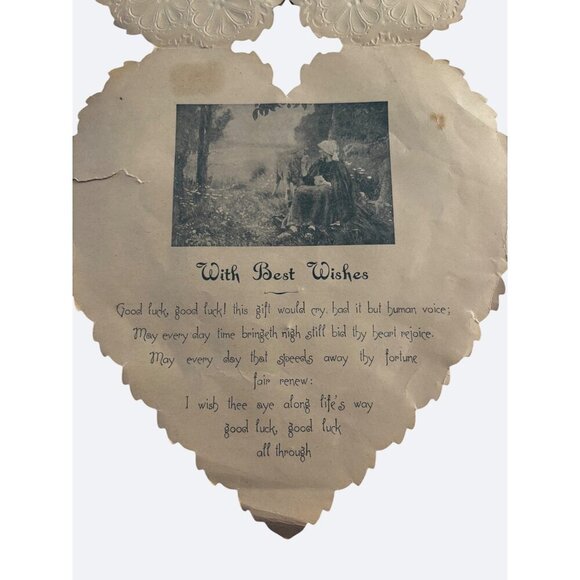 With Best Wishes
Good luck, good luck! this gift would cry, had it but human voice;
May every day time bringeth nigh still bid thy heart rejoice.
May every day that speeds away thy fortune
fair renew:
I wish thee aye along life's way
good luck, good luck
all through